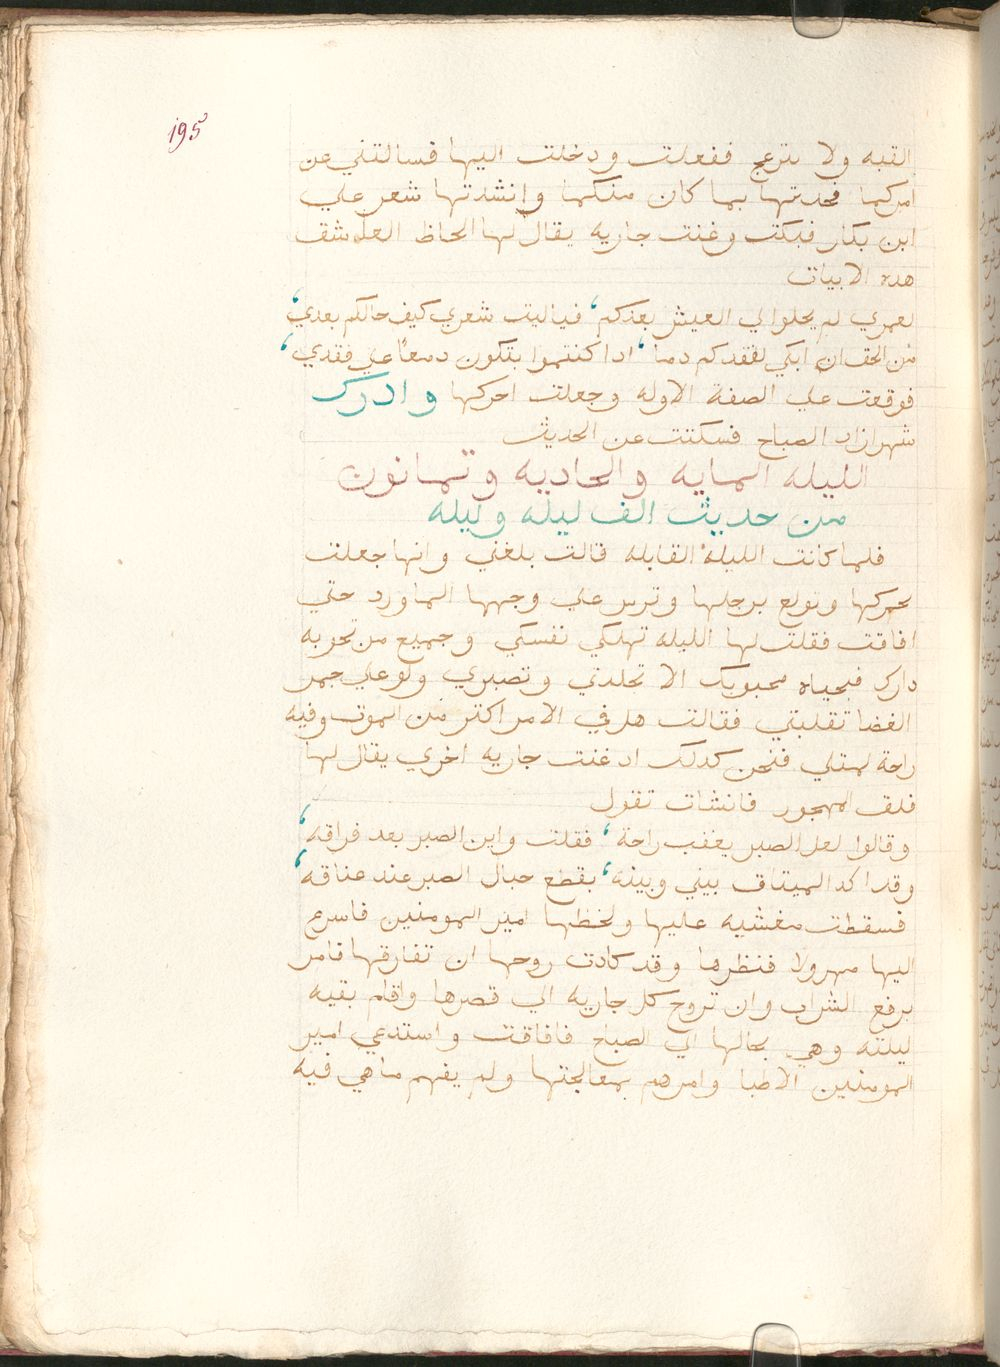 195
القبه ولا ينزعج ففعلت ودخلت اليها فسالتني عن
امركما فحدتتها بما كان منكما وانشدتها شعر علي
ابن بكار فبكت وغنت جاريه يقال لها الحاظ العاشق
هده الابيات
لعمري لم يحلوا لي العيش بعدكم ‘ فياليت شعري كيف حالكم بعدي ‘
من الحق ان ابكي لفقدكم دما ‘ ادا كنتموا بتكون دمعاً علي فقدي ‘
فوقعت علي الصفة الاوله وجعلت احركها وادرك
شهرازاد الصباح فسكتت عن الحديث
الليله المايه والحاديه وتمانون
من حديث الف ليله وليله
فلما كانت الليلة القابله قالت بلغني وانها جعلت
تحركها وتولع برجلها وترس علي وجهها الماورد حتي
افاقت فقلت لها الليله تهلكي نفسكي وجميع من تحويه
دارك فبحياه محبوبك الا تجلدتي وتصبري ولو علي جمر
الغضا تقلبتي فقالت هل في الامر اكتر من الموت وفيه
راحة لمتلي فنحن كدلك اد غنت جاريه اخري يقال لها
قلق المهجور فانشات تقول
وقالوا لعل الصبر يعقب راحة ‘ فقلت واين الصبر بعد فراقه ‘
وقد اكد الميتاق بيني وبينه ‘ بقطع حبال الصبر عند عناقه ‘
فسقطت مغشيه عليها ولحظها امير المومنين فاسرع
اليها مهرولا فنظرها وقد كادت روحها ان تفارقها فامر
برفع الشراب وان تروح كل جاريه الي قصرها واقام بقيه
ليلته وهي بحالها الي الصباح فافاقت واستدعي امير
المومنين الاطبا وامرهم بمعالجتها ولم يفهم ما هي فيه